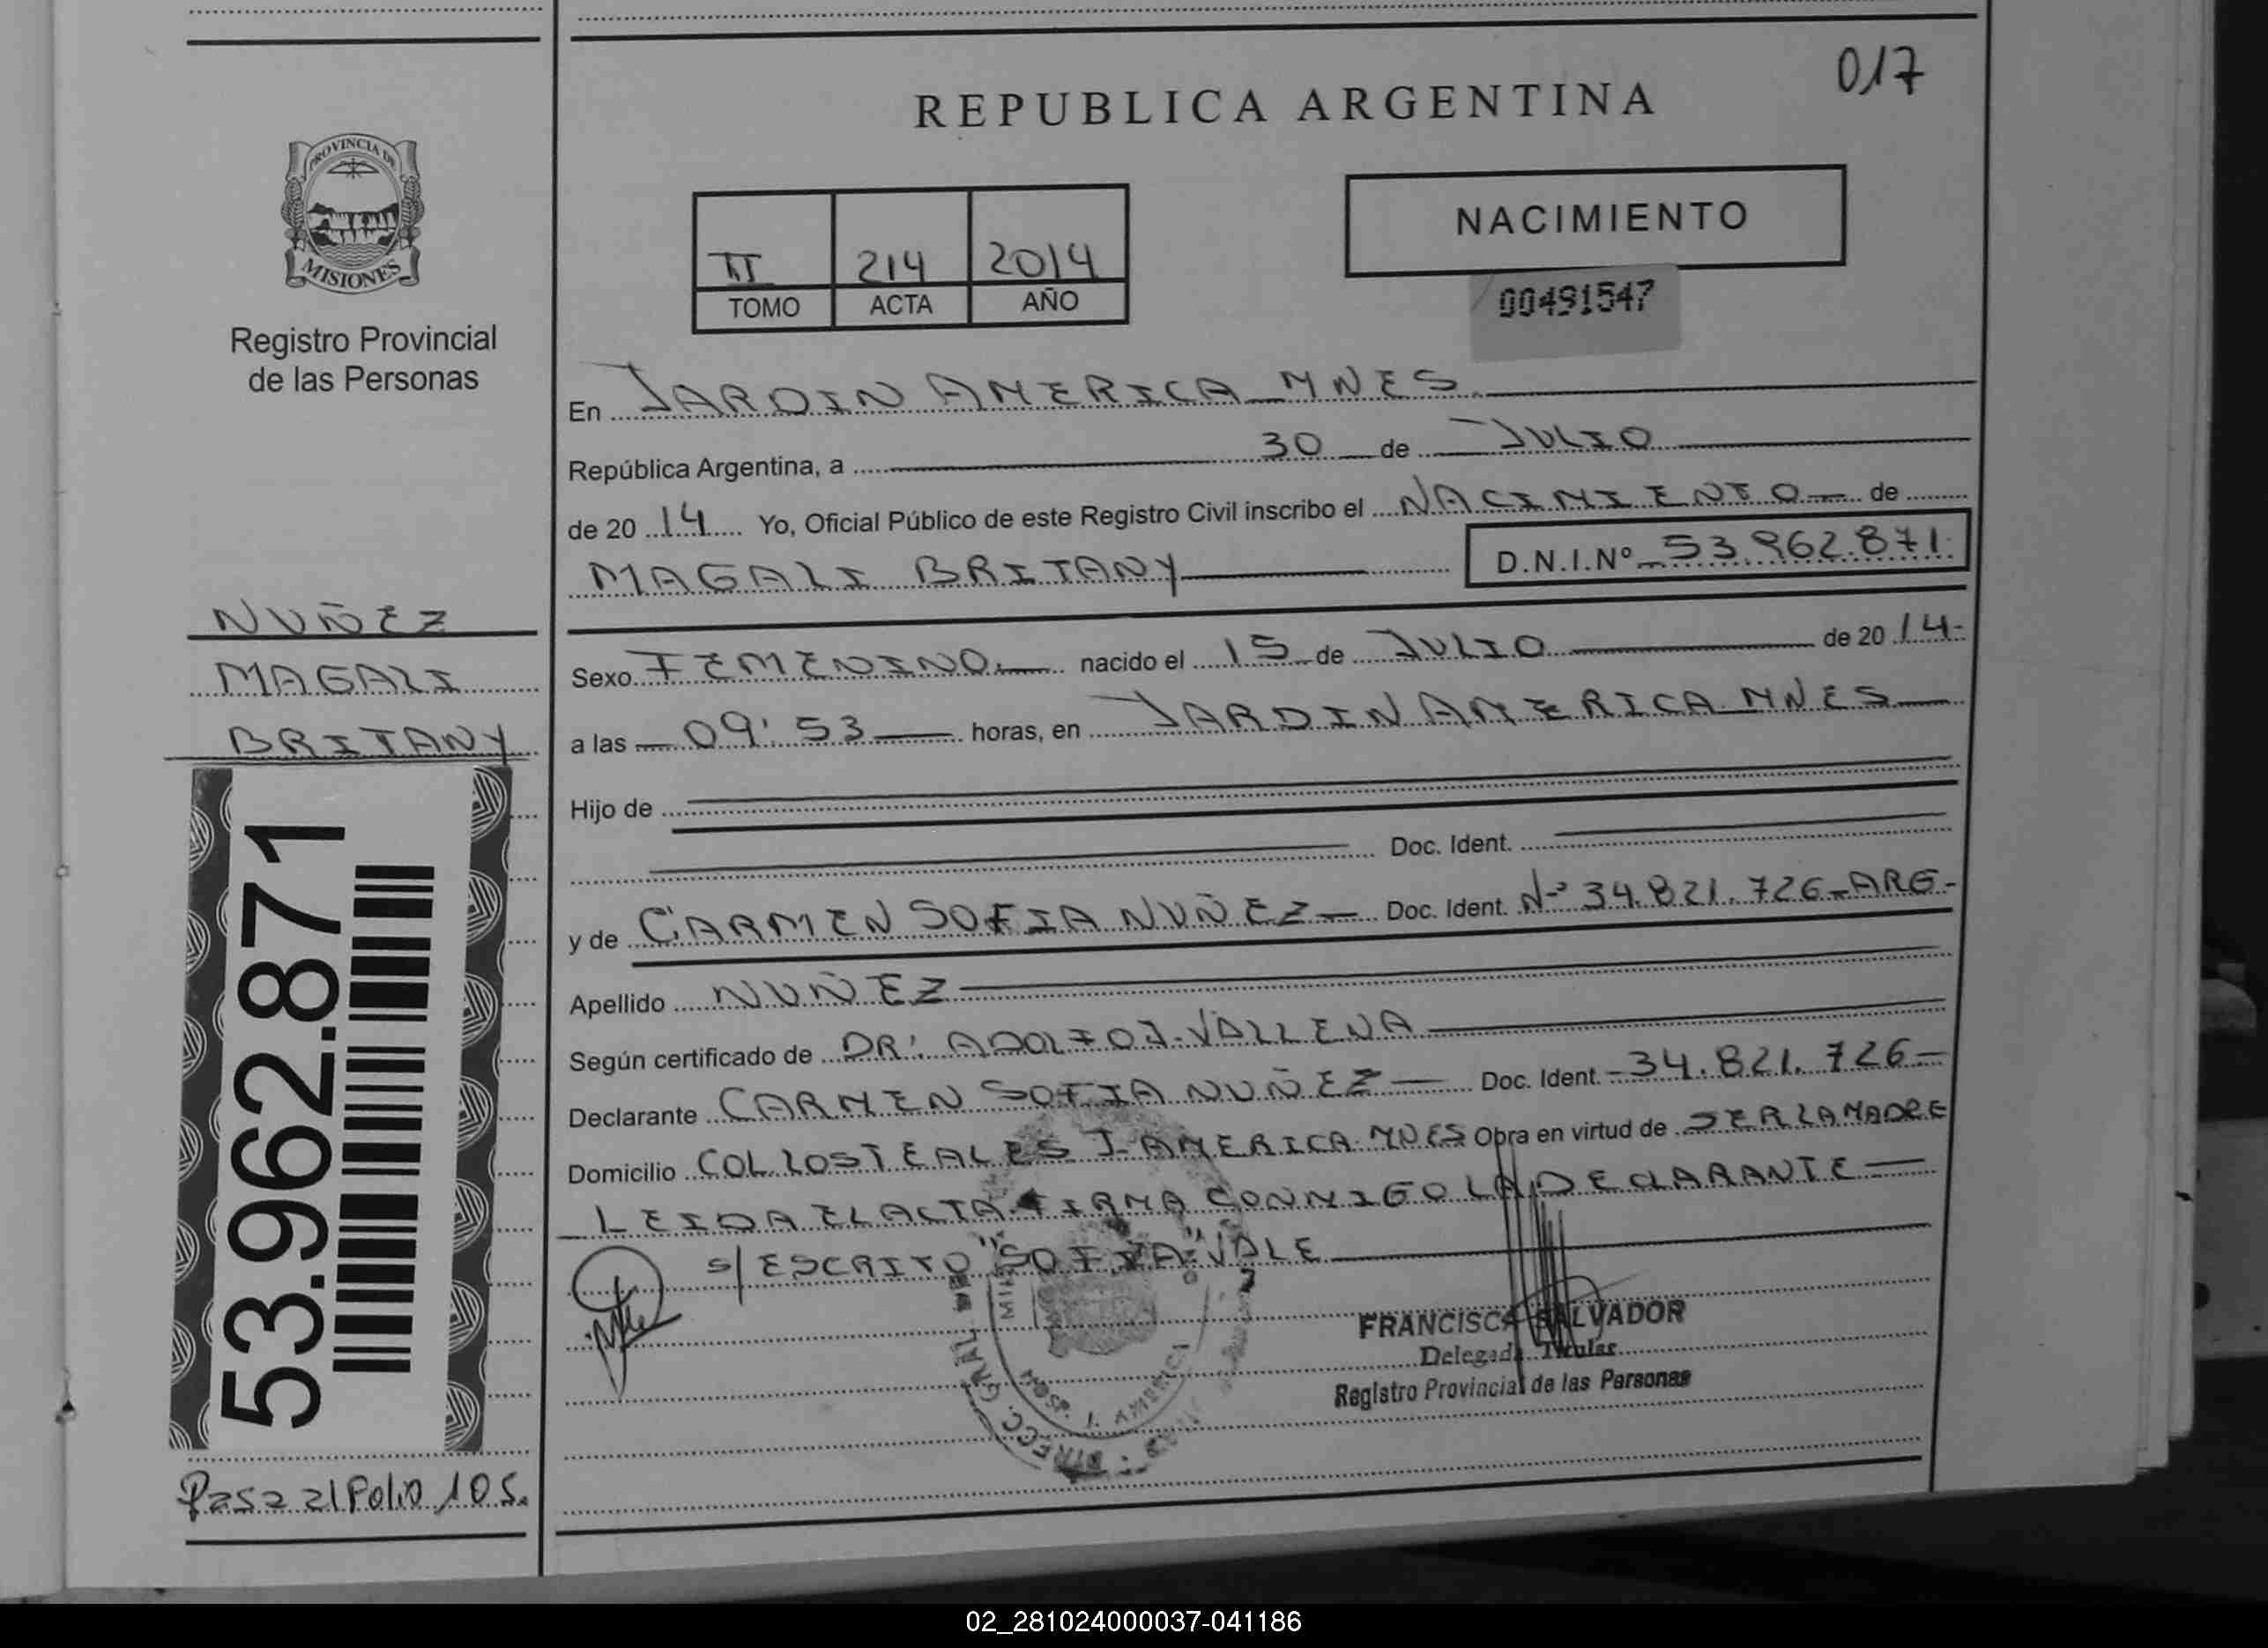 017
REPUBLICA ARGENTINA
PROVINCIA DE
MISIONES
Registro Provincial
de las Personas
II 214 2014
TOMO ACTA AÑO
NACIMIENTO
00491547
En JARDIN AMERICA MNES.
República Argentina, a 30 de JULIO
de 20 14 Yo, Oficial Público de este Registro Civil inscribo el NACIMIENTO de
MAGALI BRITANY D.N.I.Nº 53.962.871
NUÑEZ
MAGALI
BRITANY
53.962.871
Pasa al Folio 105.
Sexo FEMENINO. nacido el 15 de JULIO de 20 14-
a las 09:53 horas, en JARDIN AMERICA MNES
Hijo de
Doc. Ident.
y de CARMEN SOFIA NUÑEZ Doc. Ident. Nº 34.821.726-ARG-
Apellido NUÑEZ
Según certificado de DR: ADOLFO J. VALLENA
Declarante CARMEN SOFIA NUÑEZ Doc. Ident. 34.821.726
Domicilio COL. LOS TEALES J. AMERICA. MNES Obra en virtud de SER LA MADRE
LEIDA EL ACTA FIRMA CONMIGO LA DECLARANTE
S/ ESCRITO "SOFIA" VALE
DIRECC. GRAL.
J. AMERICA
FRANCISCA SALVADOR
Delegada Titular
Registro Provincial de las Personas
02_281024000037-041186